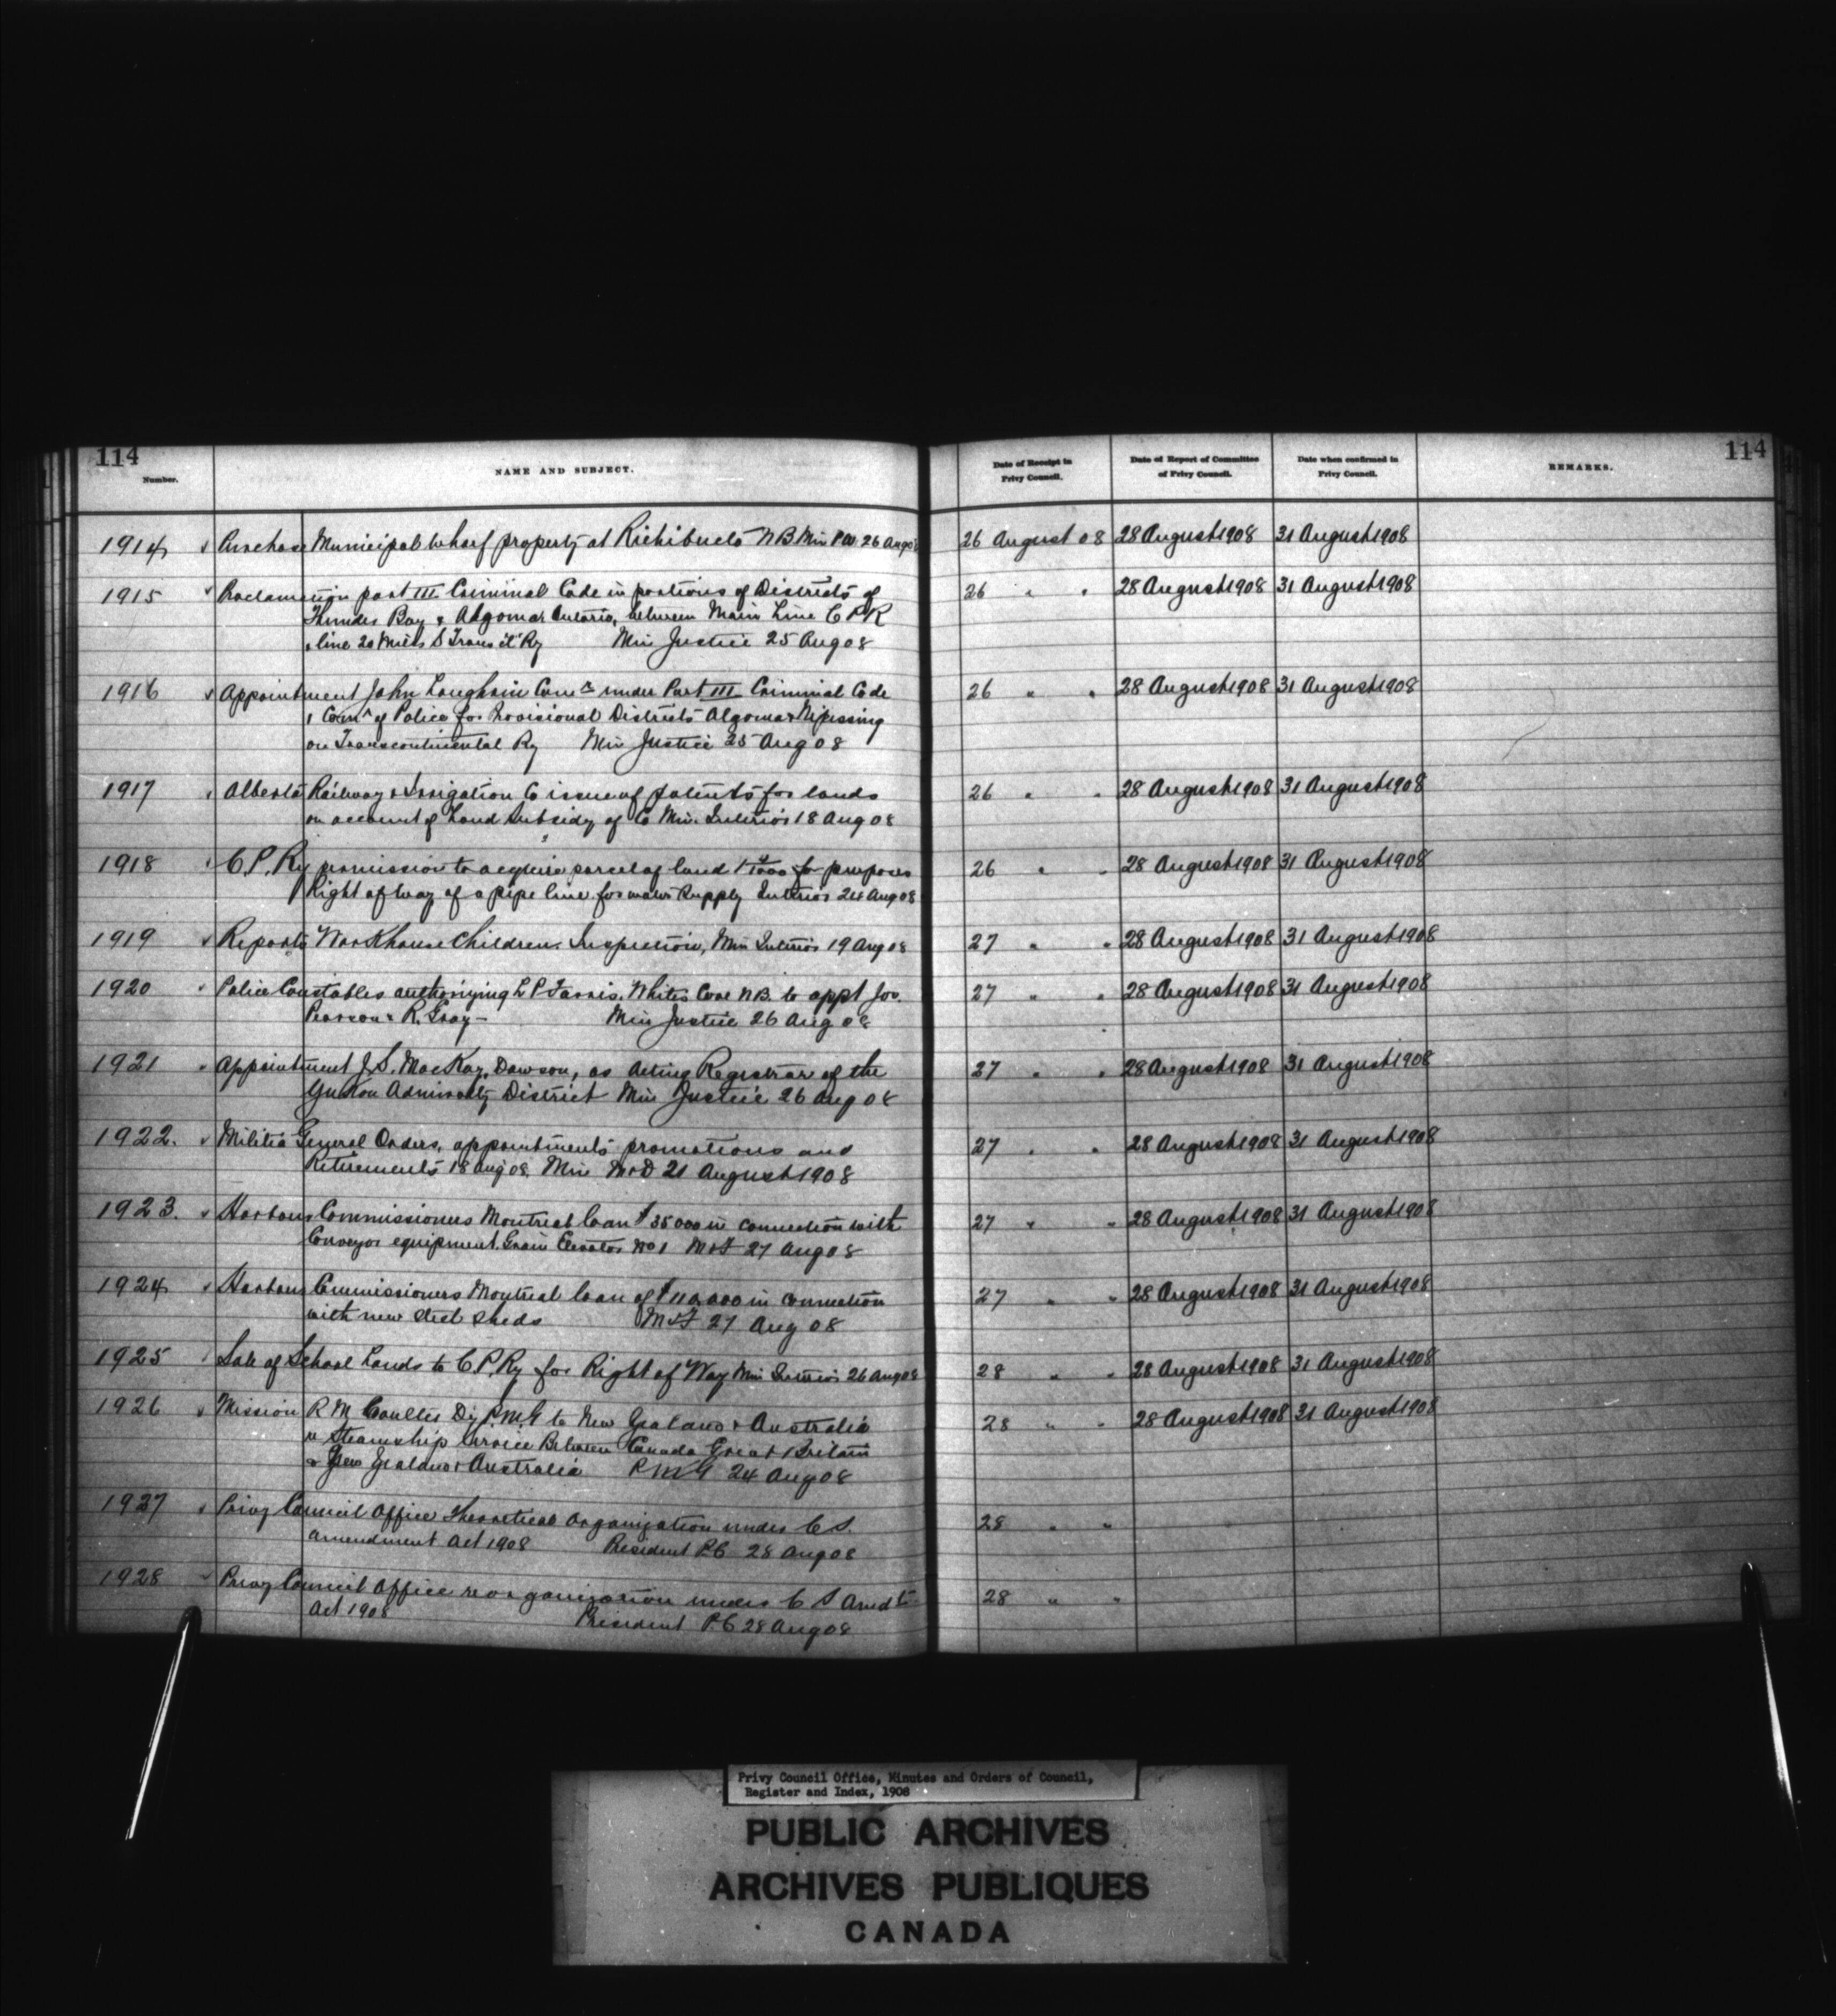 114
Number.
NAME AND SUBJECT.
Date of Receipt in Privy Council.
Date of Report of Committee of Privy Council.
Date when confirmed in Privy Council.
REMARKS.
114
1914 Purchase Municipal Wharf property at Richibucto NB Min PW 26 Aug 08 26 August 08 28 August 1908 31 August 1908
1915 Proclamation part III Criminal Code in portions of Districts of 26 " " 28 August 1908 31 August 1908
Thunder Bay & Algoma Ontario, between Main Line C P R
& line 20 Miles S Trans'tl Ry Min Justice 25 Aug 08
1916 Appointment John Loughrin Comr under Part III Criminal Code 26 " " 28 August 1908 31 August 1908
& Comr of Police for Provisional Districts Algoma & Nipissing
on Transcontinental Ry Min Justice 25 Aug 08
1917 Alberta Railway & Irrigation Co issue of patents for lands 26 " " 28 August 1908 31 August 1908
on account of Land Subsidy of Co Min. Interior 18 Aug 08
1918 C.P. Ry permission to acquire parcel of land for purposes 26 " " 28 August 1908 31 August 1908
Right of way of a pipe line for water supply Interior 24 Aug 08
1919 Reports Workhouse Children. Inspection, Min Interior 19 Aug 08 27 " " 28 August 1908 31 August 1908
1920 Police Constables authorizing L P Farris, Whites Cove N.B. to appt Jos. 27 " " 28 August 1908 31 August 1908
Pearson & R. Gray - Min Justice 26 Aug 08
1921 Appointment J.S. MacKay, Dawson, as Acting Registrar of the 27 " " 28 August 1908 31 August 1908
Yukon Admiralty District Min Justice 26 Aug 08
1922. Militia General Orders, appointments promotions and 27 " " 28 August 1908 31 August 1908
Retirements 18 Aug 08. Min M&D 21 August 1908
1923. Harbour Commissioners Montreal loan $35000 in connection with 27 " " 28 August 1908 31 August 1908
Conveyor equipment. Grain Elevator No 1 M&F 27 Aug 08
1924 Harbour Commissioners Montreal loan of $110,000 in connection 27 " " 28 August 1908 31 August 1908
with new steel sheds M&F 27 Aug 08
1925 Sale of School Lands to C.P. Ry for Right of Way Min Interior 26 Aug 08 28 " " 28 August 1908 31 August 1908
1926 Mission R M Coulter Dy P.M.G to New Zealand & Australia 28 " " 28 August 1908 31 August 1908
re Steamship Service Between Canada Great Britain
& New Zealand & Australia P M G 24 Aug 08
1927 Privy Council Office Theoretical Organization under C S. 28 " "
amendment Act 1908 President P.C 28 Aug 08
1928 Privy Council Office reorganization under C S Amdt 28 " "
Act 1908 President P.C 28 Aug 08
Privy Council Office, Minutes and Orders of Council,
Register and Index, 1908
PUBLIC ARCHIVES
ARCHIVES PUBLIQUES
CANADA